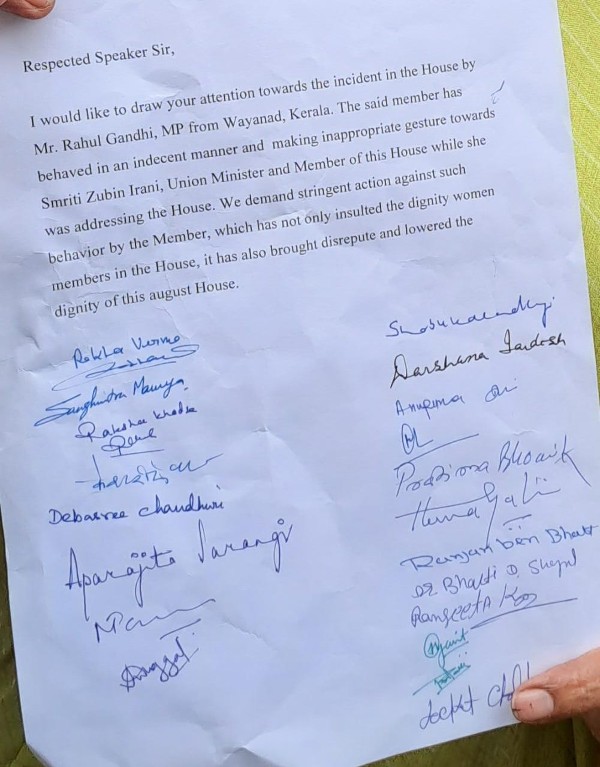 Respected Speaker Sir,
I would like to draw your attention towards the incident in the House by
Mr. Rahul Gandhi, MP from Wayanad, Kerala. The said member has
behaved in an indecent manner and making inappropriate gesture towards
Smriti Zubin Irani, Union Minister and Member of this House while she
was addressing the House. We demand stringent action against such
behavior by the Member, which has not only insulted the dignity women
members in the House, it has also brought disrepute and lowered the
dignity of this august House.
Rekha Verma
Sanghmitra Maurya
Raksha Khadse
Debasree Chaudhuri
Aparajita Sarangi
Darshana Jardosh
Anupriya
Pratima Bhoumik
Ranjanben Bhatt
DR Bharti D. Shyal
Rangeeta Koy